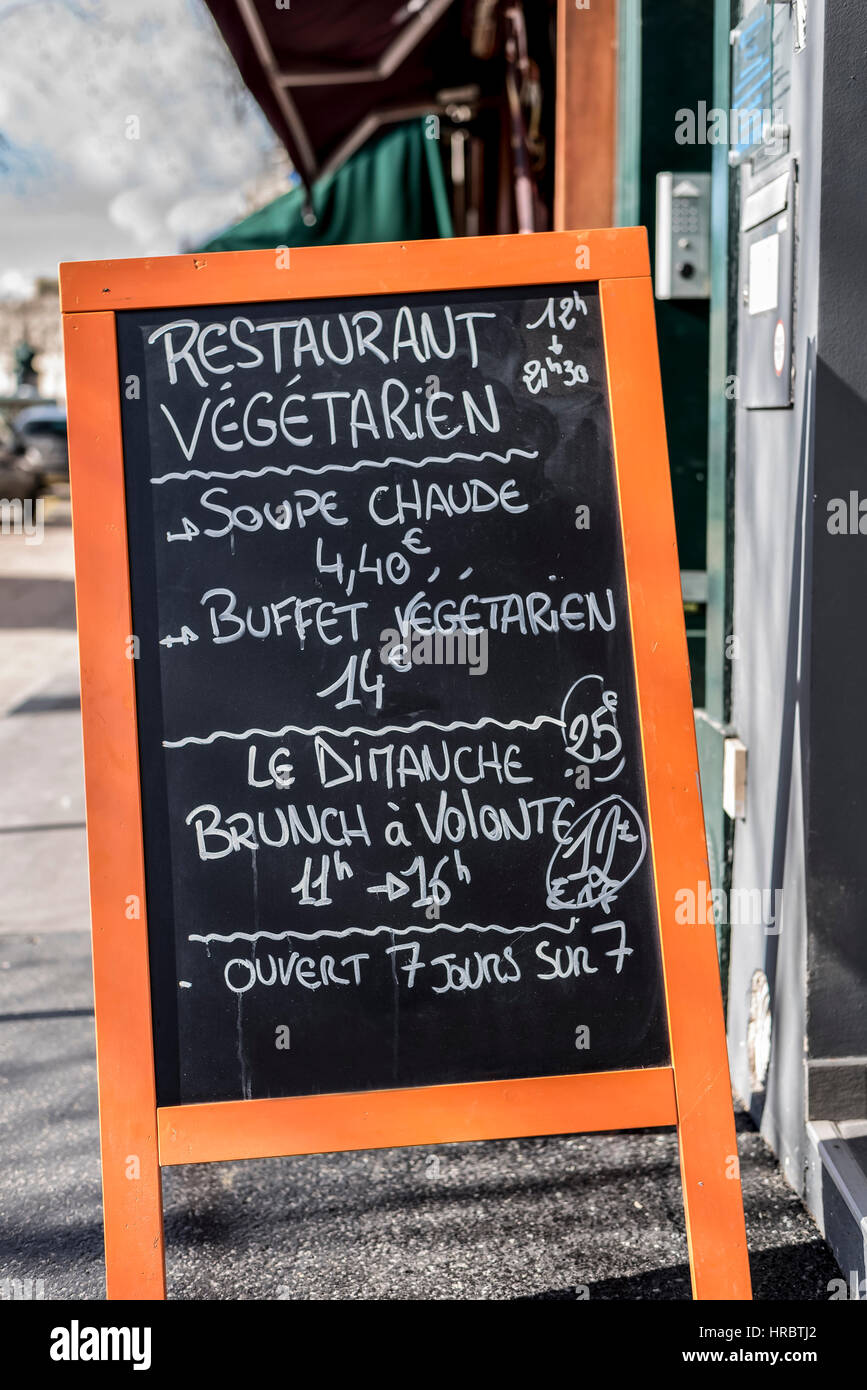 RESTAURANT 12h
VÉGÉTARIEN 21h30
SOUPE CHAUDE
4,40€
BUFFET VÉGÉTARIEN
14€
25€
LE DIMANCHE
BRUNCH à VOLONTÉ
11h → 16h
OUVERT 7 JOURS SUR 7
alamy
Image ID: HRBTJ2
www.alamy.com